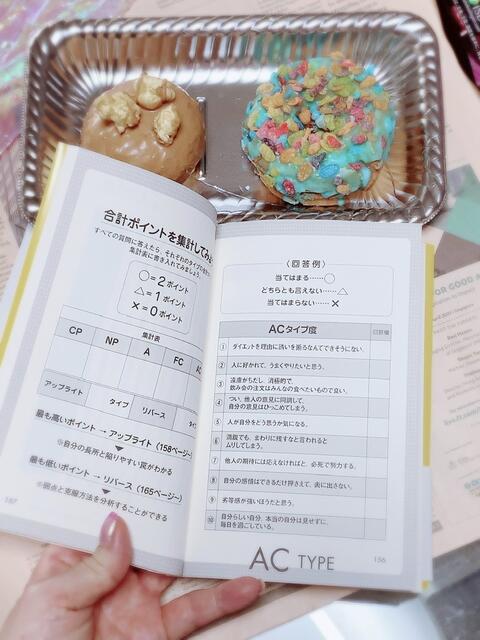 合計ポイントを集計してみよ
すべての質問に答えたら、それぞれのタイプの合計
集計表に書き入れてみましょう。
○=2ポイント
△=1ポイント
×=0ポイント
集計表
CP NP A FC AC
アップライト タイプ リバース タイ
最も高いポイント → アップライト(158ページ~)
※自分の長所と陥りやすい罠がわかる
最も低いポイント → リバース(165ページ~)
※弱点と克服方法を分析することができる
157
〈回答例〉
当てはまる……○
どちらとも言えない……△
当てはまらない……×
ACタイプ度 回答欄
① ダイエットを理由に誘いを断るなんてできそうにない。
② 人に好かれて、うまくやりたいと思う。
③ 遠慮がちだし、消極的で、
飲み会の注文はみんなの食べたいもので良い。
④ つい、他人の意見に同調して、
自分の意見はひっこめてしまう。
⑤ 人が自分をどう思うか気になる。
⑥ 満腹でも、まわりに残すなと言われると
ムリしてしまう。
⑦ 他人の期待には応えなければと、必死で努力する。
⑧ 自分の感情はできるだけ押さえて、表に出さない。
⑨ 劣等感が強いほうだと思う。
⑩ 自分らしい自分、本当の自分は見せずに、
毎日を過ごしている。
AC TYPE
156